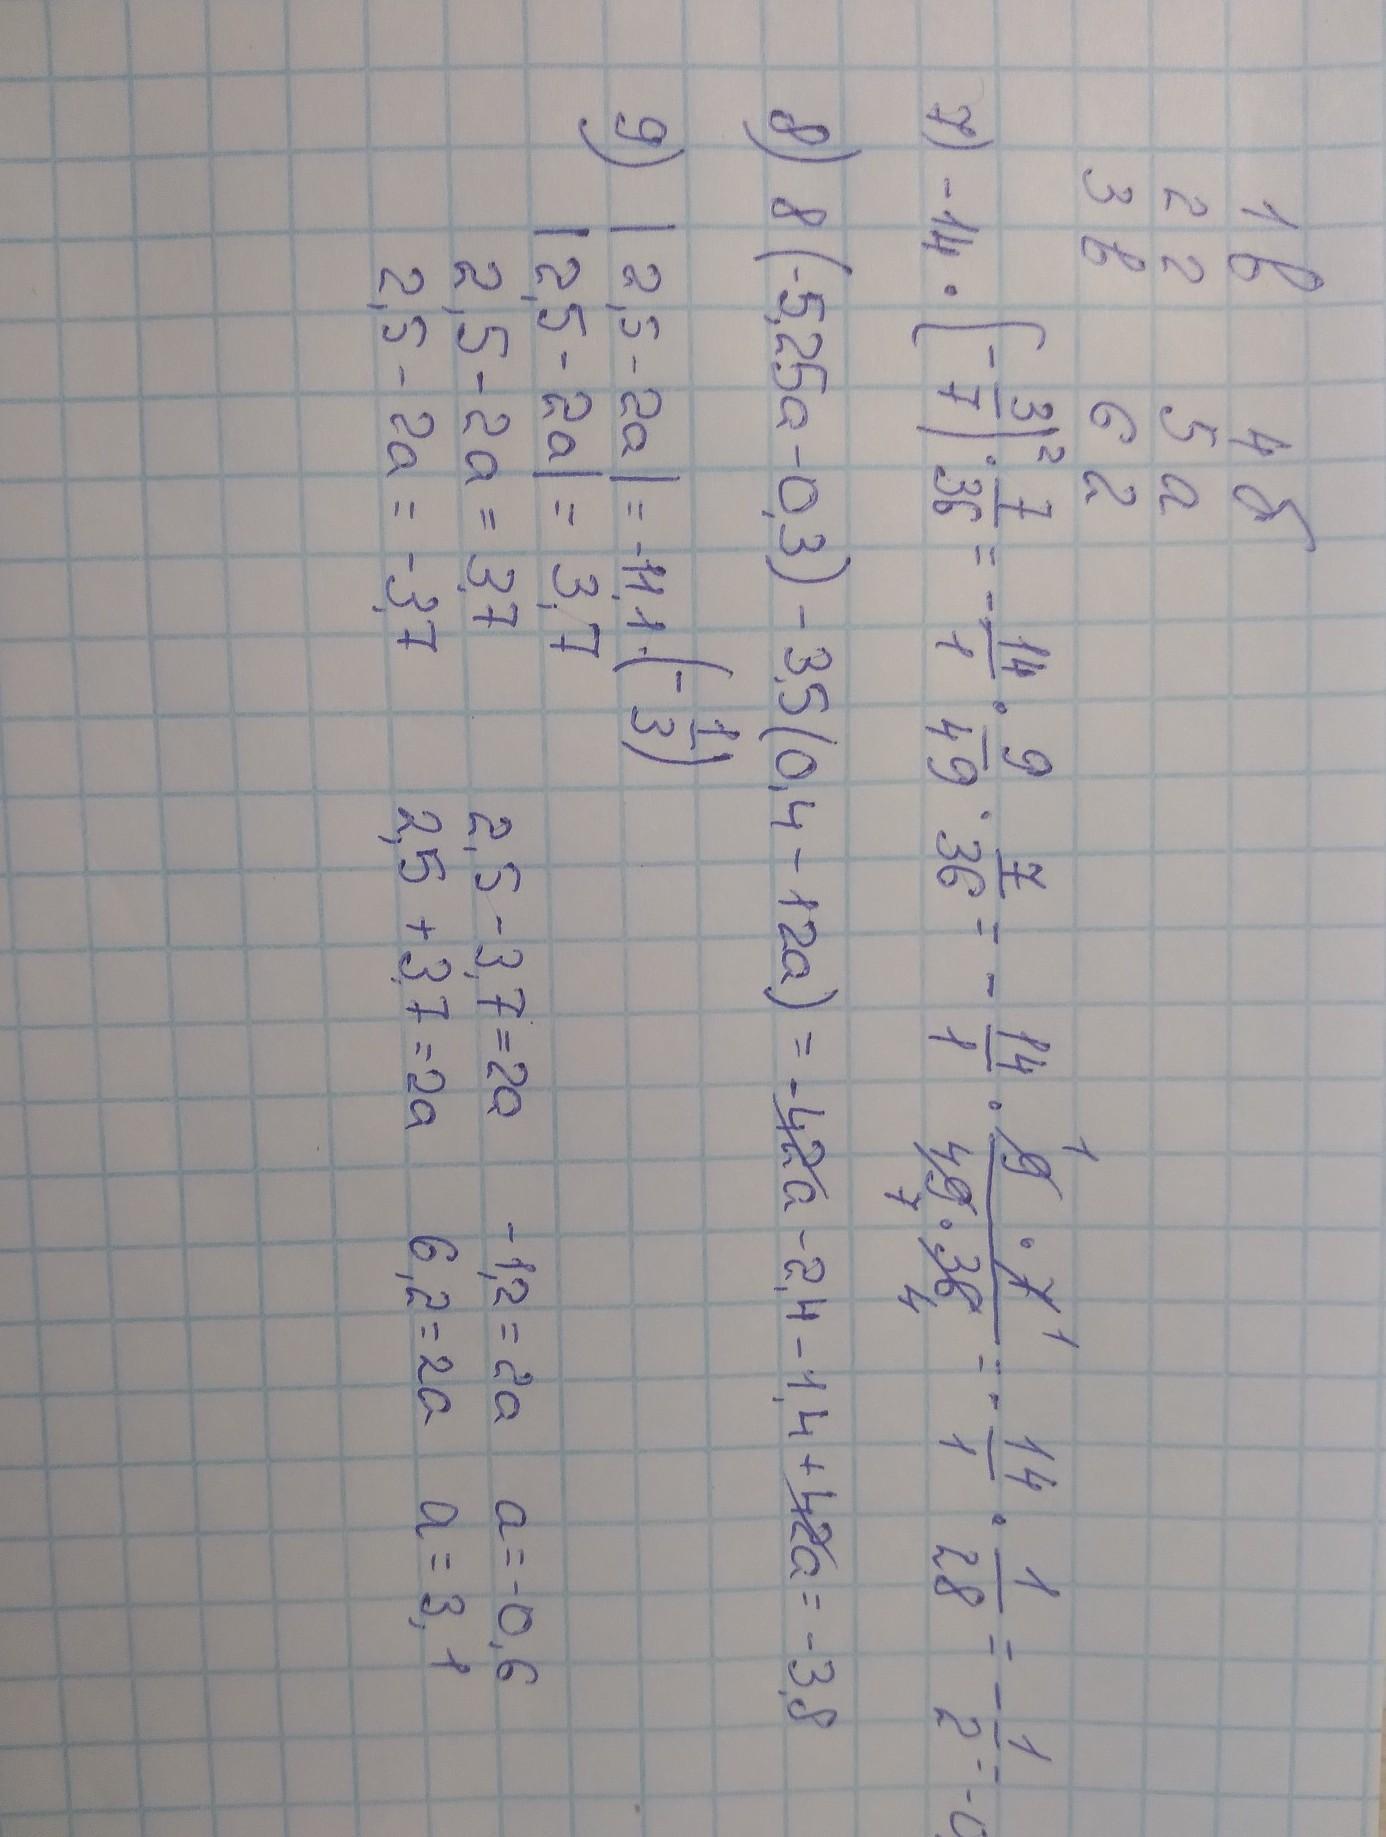 1 в 4 б
2 г 5 а
3 в 6 г
7) -14 · (-3/7)² · 7/36 = -14/1 · 9/49 · 7/36 = -14/1 · (9 · 7)/(49 · 36) = -14/1 · 1/28 = -1/2 = -0
8) 8(-5,25a-0,3)-3,5(0,4-12a) = -42a-2,4-1,4+42a=-3,8
9) |2,5-2a|=-11,1·(-1/3)
|2,5-2a|=3,7
2,5-2a=3,7 2,5-3,7=2a -1,2=2a a=-0,6
2,5-2a=-3,7 2,5+3,7=2a 6,2=2a a=3,1